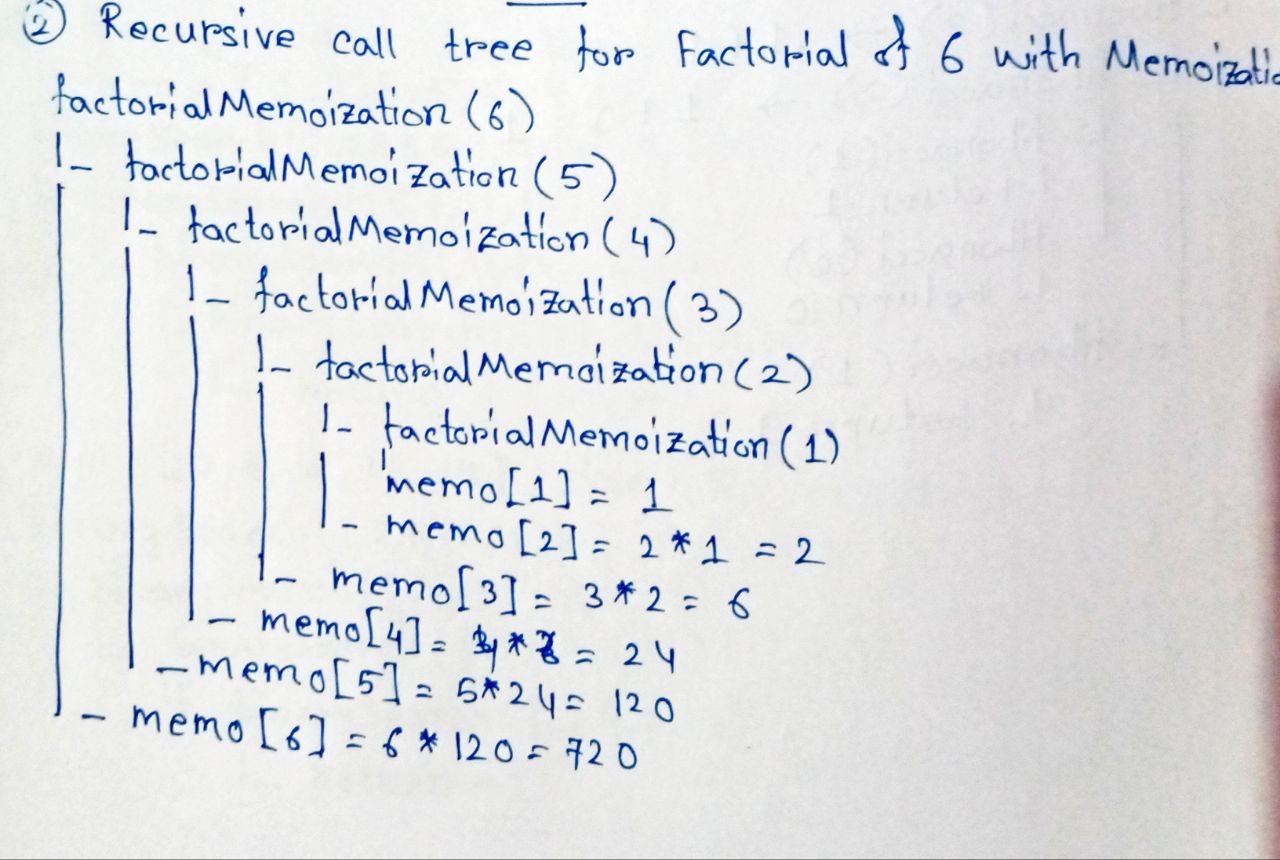 ② Recursive call tree for Factorial of 6 with Memoizatio
factorialMemoization (6)
|- factorialMemoization (5)
|- factorialMemoization (4)
|- factorialMemoization (3)
|- factorialMemoization (2)
|- factorialMemoization (1)
memo[1] = 1
- memo [2] = 2 * 1 = 2
- memo[3] = 3 * 2 = 6
- memo[4] = 4 * 6 = 24
- memo[5] = 5*24 = 120
- memo [6] = 6 * 120 = 720